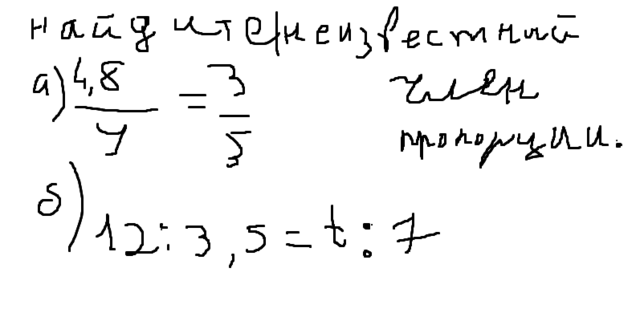 найдите неизвестный
а) 4,8/y = 3/5 член
пропорции.
б) 12:3,5=t:7